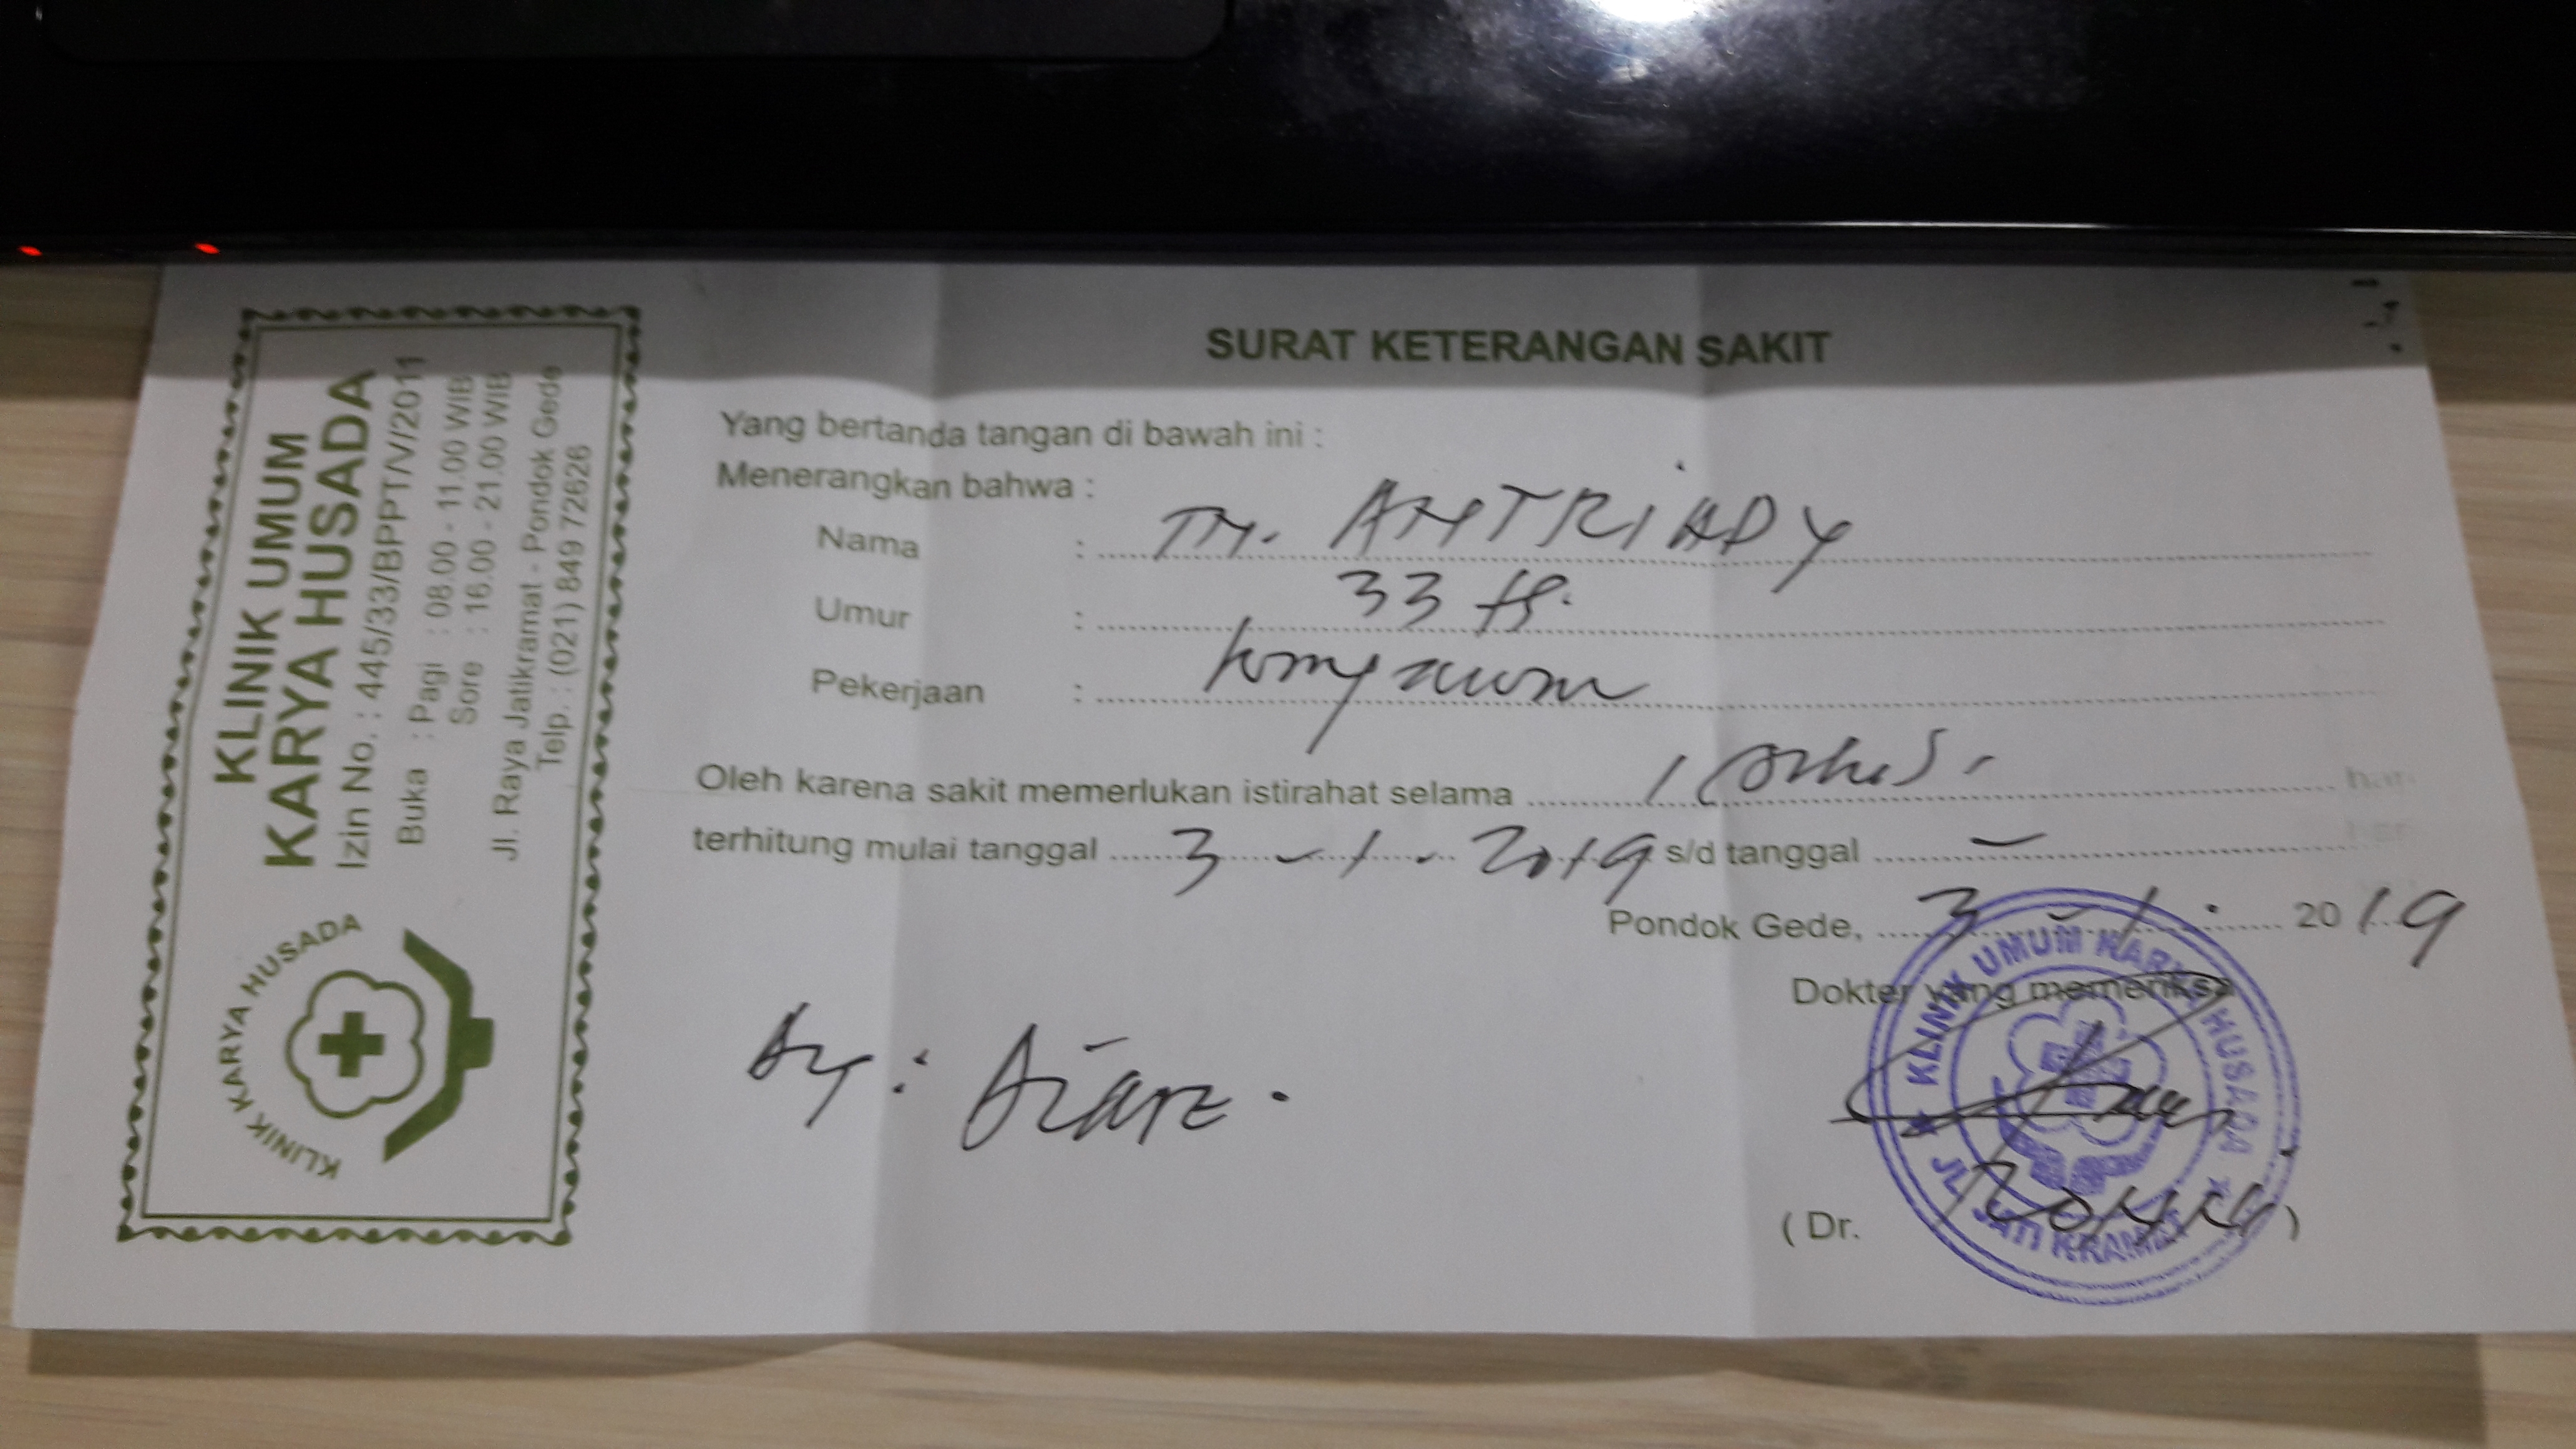 KLINIK UMUM
KARYA HUSADA
Izin No. : 445/33/BPPT/V/2011
Buka : Pagi : 08.00 - 11.00 WIB
Sore : 16.00 - 21.00 WIB
Jl. Raya Jatikramat - Pondok Gede
Telp. : (021) 849 72626
KLINIK KARYA HUSADA
SURAT KETERANGAN SAKIT
Yang bertanda tangan di bawah ini :
Menerangkan bahwa :
Nama : TN. ANTRIADY
Umur : 33 th.
Pekerjaan : karyawan
Oleh karena sakit memerlukan istirahat selama 1 (satu). hari
terhitung mulai tanggal 3 - 1 - 2019 s/d tanggal -
Pondok Gede, 3 - 1 - 2019
Dokter yang memeriksa
Dx : Diare.
(Dr. )
KLINIK UMUM KARYA HUSADA
JL. JATI KRAMAT